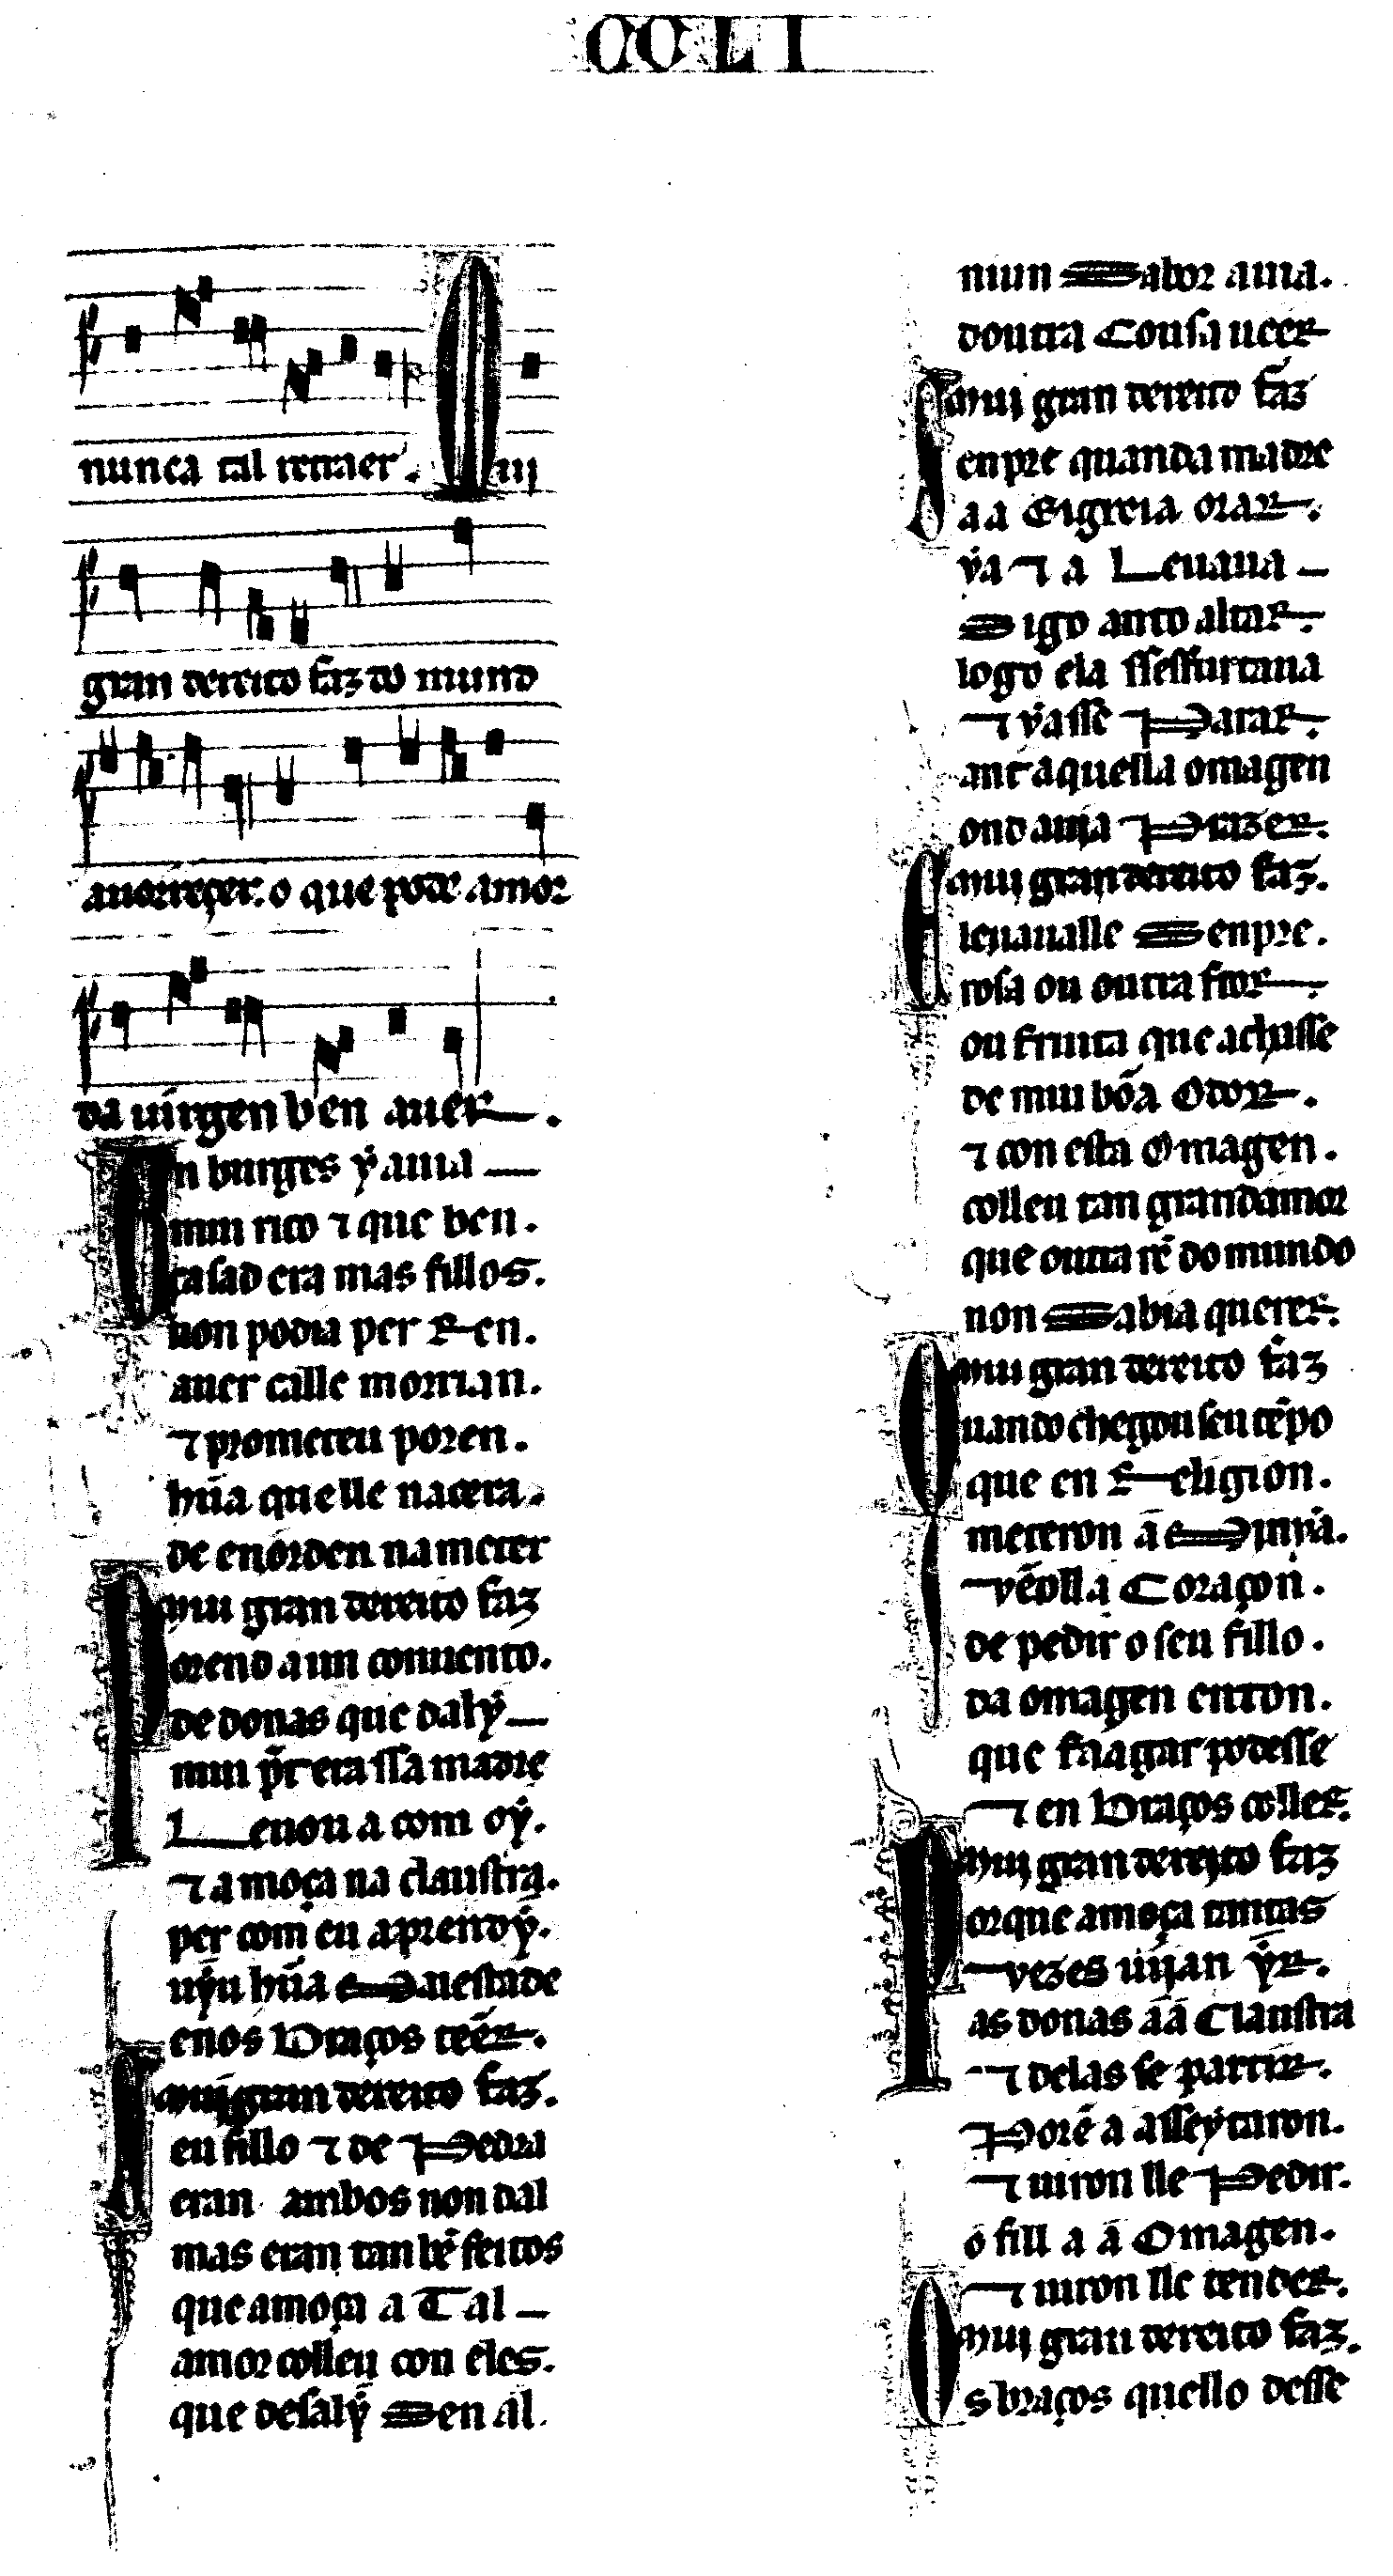 CCLI
nunca tal retraer. Mui
gran dereito faz do mund
auorreçer. o que pode amor
da uirgen ben auer.
Un burges ẏ auia
mui rico ⁊ que ben.
casad era mas fillos.
non podia per Ren.
auer calle morrian.
⁊ prometeu poren.
hũa que lle nacera.
de en órden na meter
mui gran dereito faz
Porend a un conuento.
de donas que dalẏ
mui pret era ssa madre
Leuou a com oẏ.
⁊ a moça na claustra.
per com eu aprendẏ.
uẏu hũa Maiestade
enos Braços teer.
mui gran dereito faz.
Seu fillo ⁊ de Pedra
eran ambos non dal
mas eran tan bẽ feitos
que a moça a Tal
amor colleu con eles.
que desalẏ Sen al.
niun Sabor auia.
doutra Cousa ueer
mui gran dereito faz
Senpre quand a madre
a a Eigreia orar.
ẏa ⁊ a Leuaua
Sigo anto altar.
logo ela ssess furtaua
⁊ ẏasse Parar.
ant aquesta omagen
ond auia Prazer.
mui gran dereito faz.
E leuaualle Senpre.
rosa ou outra fror
ou fruita que achasse
de mui bõa Odor.
⁊ con esta Omagen.
colleu tan grand amor
que outra rẽ do mundo
non Sabia querer.
mui gran dereito faz
Quando chegou seu tẽpo
que en Religion.
meteron a Miñỹa.
vẽolla Coraçon.
de pedir o seu fillo.
da omagen enton.
que fṙagar podesse
⁊ en Braços coller.
mui gran dereito faz
Porque a moça tantas
vezes uijan ẏr.
as donas áá Claustra
⁊ delas se partir.
Porẽ a asseytaron.
⁊ uiron lle Pedir.
o fill a á Omagen.
⁊ uiron lle tender.
mui gran dereito faz.
Os braços quello desse